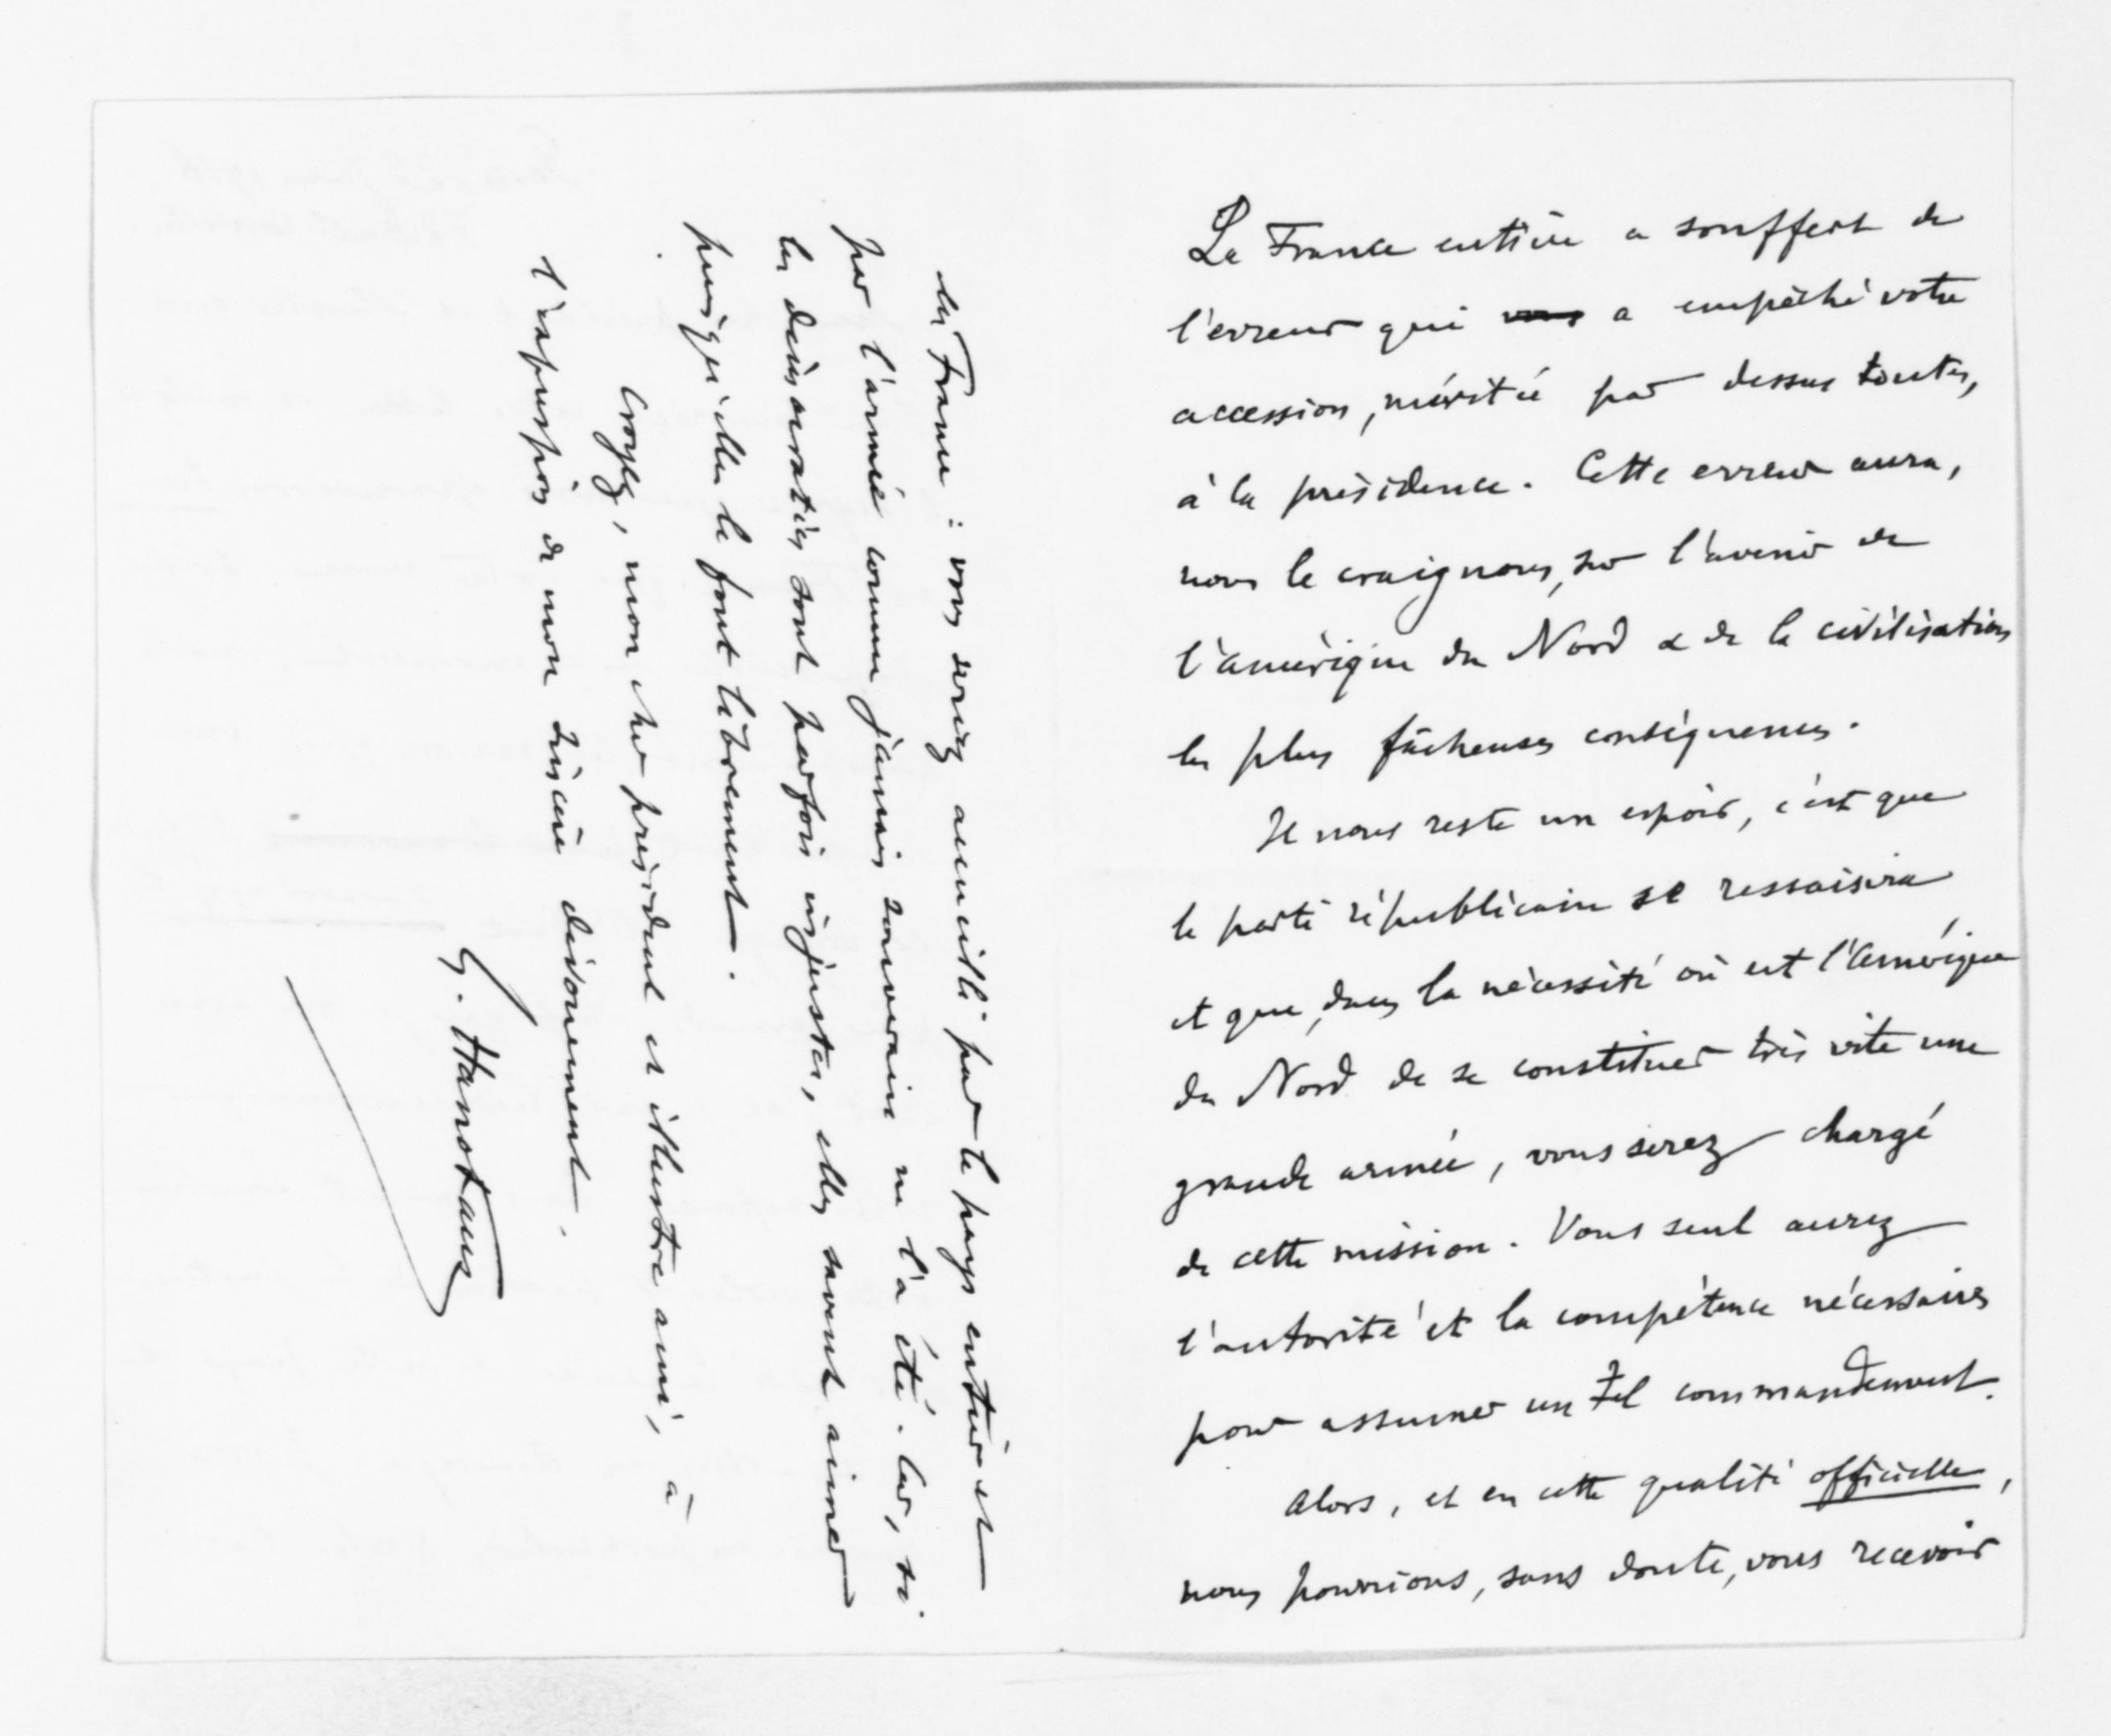 La France entière a souffert de
l'erreur qui vous a empêché votre
accession, méritée par dessus toutes,
à la présidence. Cette erreur aura,
nous le craignons, sur l'avenir de
l'amérique du Nord & de la civilisation
les plus fâcheuses conséquences.
Il nous reste un espoir, c'est que
le parti républicain se ressaisira
et que, dans la nécessité où est l'Amérique
du Nord de se constituer très vite une
grande armée, vous serez chargé
de cette mission. Vous seul aurez
l'autorité et la compétence nécessaires
pour assumer un tel commandement.
Alors, et en cette qualité officielle,
nous pourrions, sans doute, vous recevoir
en France : vous seriez accueilli par le pays entier et
par l'armée comme jamais souverain ne l'a été. Car, si
les démocraties sont parfois injustes, elles savent aimer
puisqu'elles le font librement.
Croyez, mon cher président et illustre ami, à
l'expression de mon sincère dévouement.
G. Hanotaux